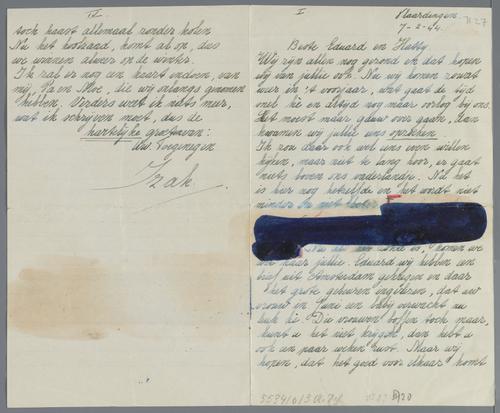 I
Vlaardingen.
7-2-44.
Beste Eduard en Hetty
Wij zijn allen nog gezond en dat hopen
wij van jullie ook. Nu wij komen zowat
weer in 't voorjaar, wat gaat de tijd
snel hè en altijd nog maar oorlog bij ons.
Het moest maar gauw over gaan, dan
kwamen wij jullie eens opzoeken.
Ik zou daar ook wel eens even willen
kijken, maar niet te lang hoor, er gaat
niets boven ons vaderlandje. Nu het
is hier nog hetzelfde en het wordt niet
minder
komen we
naar jullie. Eduard wij hebben een
brief uit Amsterdam gekregen en daar
't grote gebeuren ingelezen, dat uw
vrouw in Juni een baby verwacht nu
leuk hè. Die vrouwen boffen toch maar,
kunt u het niet krijgen, dan hebt u
ook een paar weken rust. Maar wij
hopen, dat het goed voor elkaar komt
IV
toch haast allemaal zonder kolen
Nu het koolzaad, komt al op, dus
we winnen alweer op de winter.
Ik zal er nog een kaart indoen, van
mij, Pa en Moe, die wij onlangs genomen
hebben. Verders weet ik niets meer,
wat ik schrijven moet, dus de
hartelijke groeten van:
Uw. Toegenegen
Izak